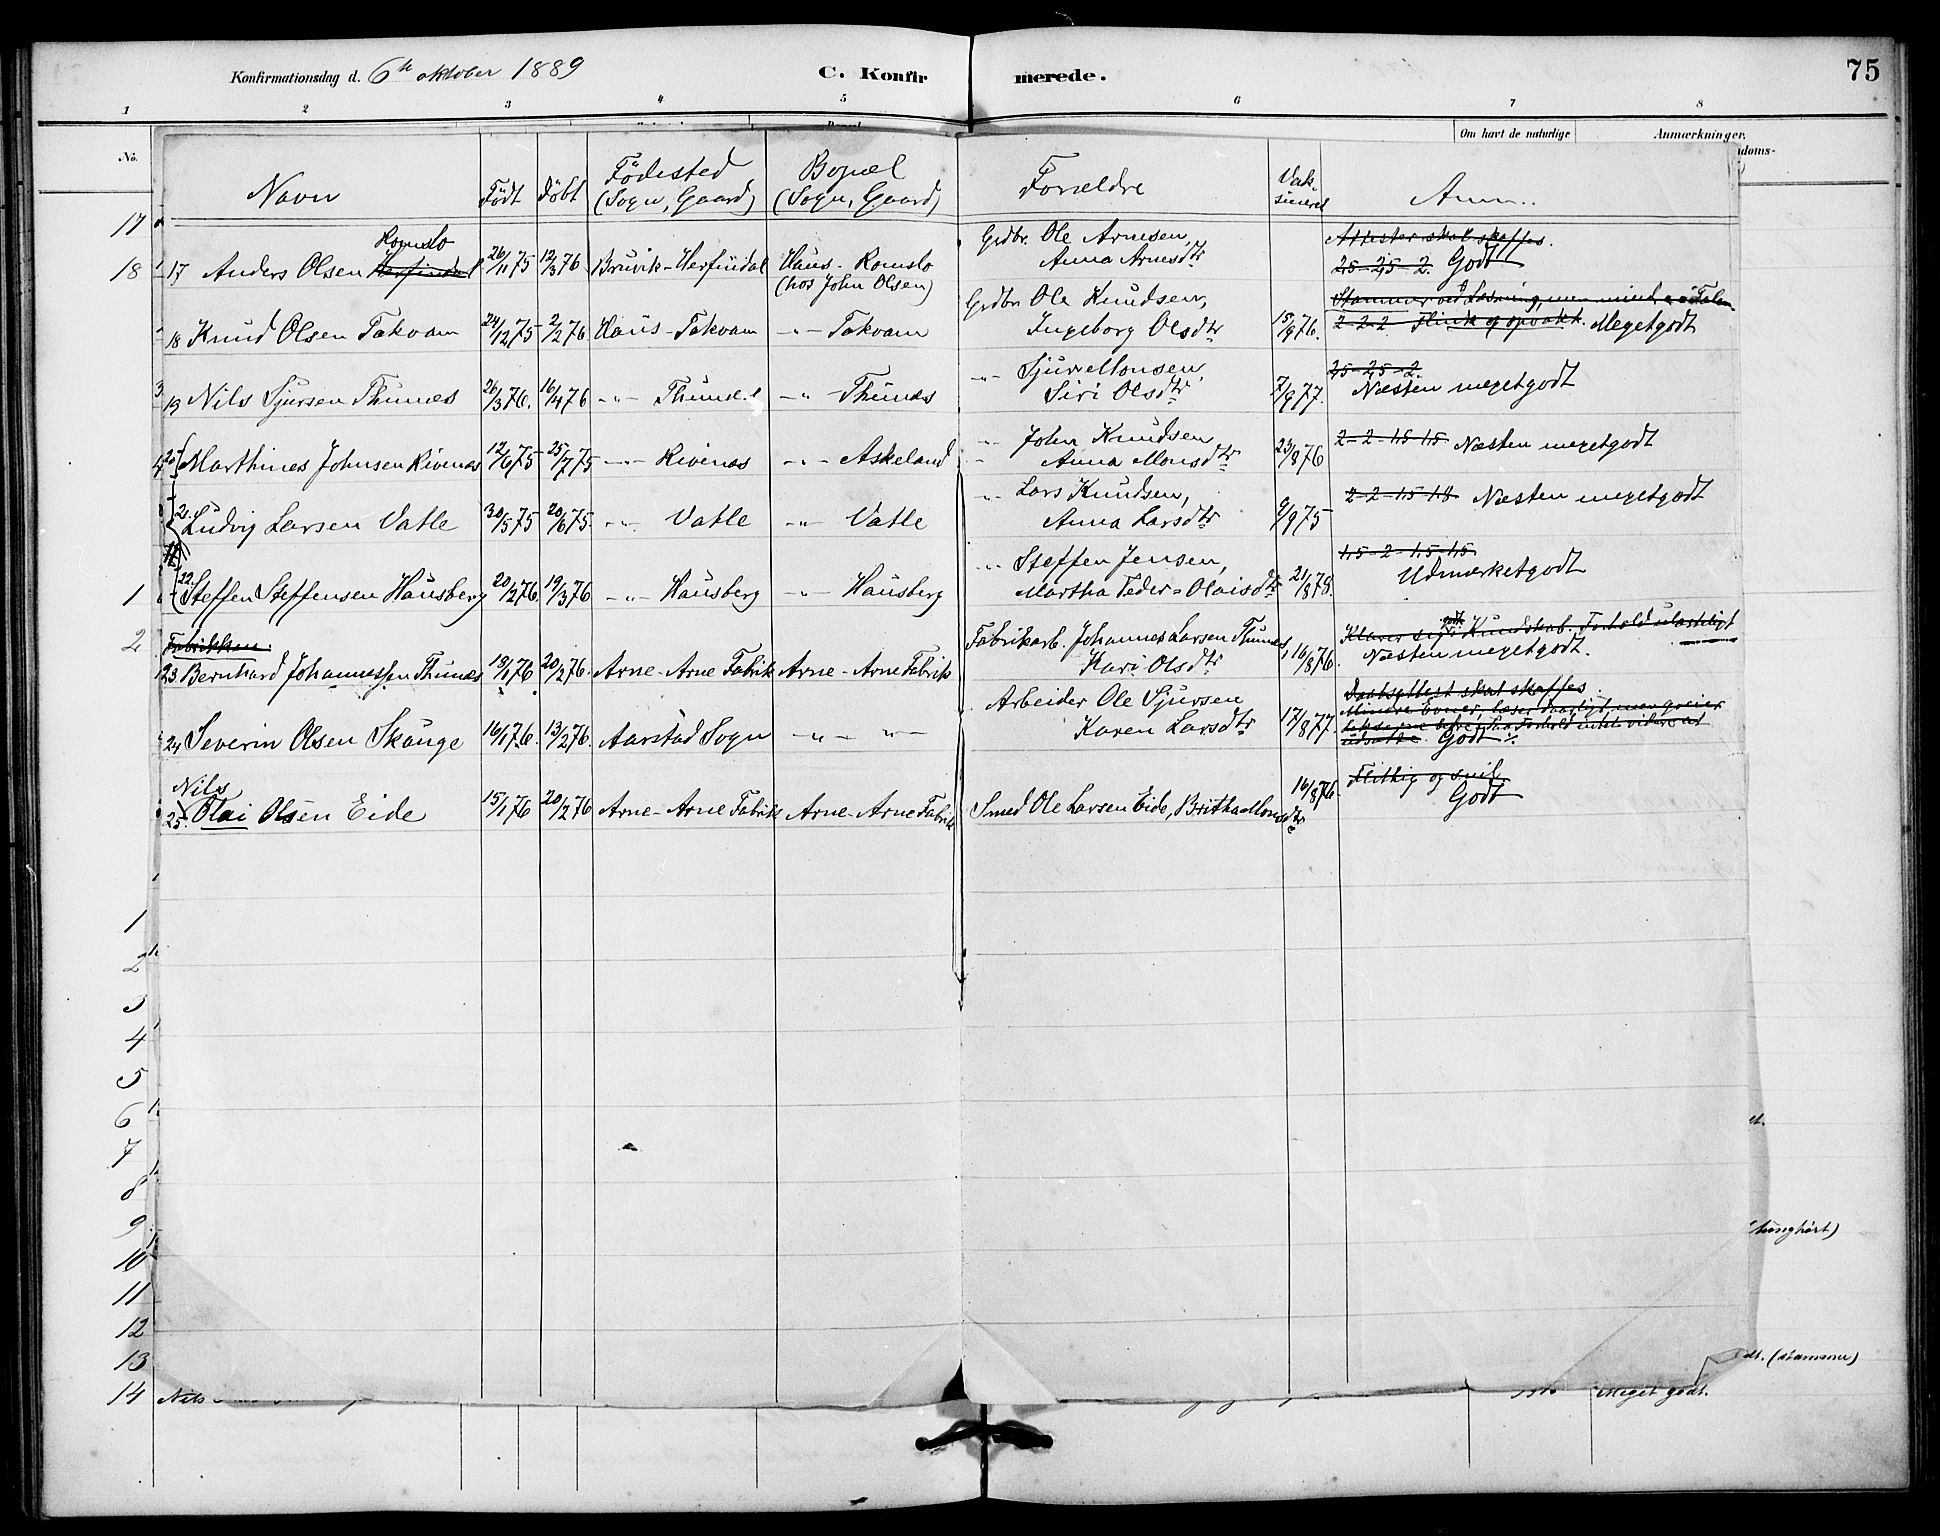 Konfirmationsdag d. 6te oktober 1889 C. Konfirmerede. 75
1 2 3 4 5 6 7 8
No. Om havt de naturlige Anmærkninger.
Navn Födt Döbt Födested (Sogn, Gaard) Bopæl (Sogn, Gaard) Forældre Vaksineret Anm..
17
18
Romslo
17 Anders Olsen Herfindal 26/11 75 12/3 76 Bruvik - Herfindal Haus - Romslo (hos John Olsen) Grdbr. Ole Arnesen, Anna Arnesdtr Attester skal skaffes. 2,5 - 2,5 - 2. Godt
18 Knud Olsen Takvam 24/12 75 2/2 76 Haus - Takvam -"- Takvam Grdbr Ole Knudsen, Ingeborg Olsdtr 15/9 76. Stammer ved Læsning, men mindre i Talen 2 - 2 - 2 Flink og opvakt. Megetgodt
19 Nils Sjursen Thunes 26/3 76. 16/4 76 -"- Thunes -"- Thunes -"- Sjur Monsen, Siri Olsdtr 7/9 77. 2,5 - 2,5 - 2. Næsten megetgodt
20 Marthines Johnsen Rivenes 12/6 75 25/7 75 -"- Rivenes -"- Askeland -"- John Knudsen Anna Monsdtr 23/8 76 2 - 2 - 1,5 - 1,5 Næsten megetgodt
21. Ludvig Larsen Vatle 30/5 75 20/6 75. -"- Vatle -"- Vatle -"- Lars Knudsen, Anna Larsdtr 9/9 75 2 - 2 - 1,5 - 1,8 Næsten megetgodt
1
22. Steffen Steffensen Hausberg 20/2 76. 19/3 76 -"- Hausberg -"- Hausberg -"- Steffen Jensen, Martha Peder=Olaisdtr 21/8 78. 1,5 - 2 - 1,5 - 1,5 Udmerketgodt
2
Fabrikken.
23 Bernhard Johannessen Thunes 18/1 76 20/2 76. Arne - Arne Fabrik Arne - Arne Fabrik Fabrikarb. Johannes Larsen Thunes, Kari Olsdtr 16/8 76. Klarer sig godt i Kundskab. Forhold ulasteligt Næsten megetgodt.
24 Severin Olsen Skauge 16/1 76. 13/2 76. Aarstad Sogn -"- -"- Arbeider Ole Sjursen Karen Larsdtr 17/8 77. Daabsattest skal skaffes. Mindre Evner, læser daarligt, men greier udsætte. Godt
Nils
25. Olai Olsen Eide 15/1 76 20/2 76 Arne - Arne Fabrik Arne - Arne Fabrik Smed Ole Larsen Eide, Britha Monsdtr 16/8 76. Flittig og snil Godt
1
2
3
4
5
6
7
8
9 (tunghørt)
10
11
12
13 (stammer)
14 Nils Meget godt.